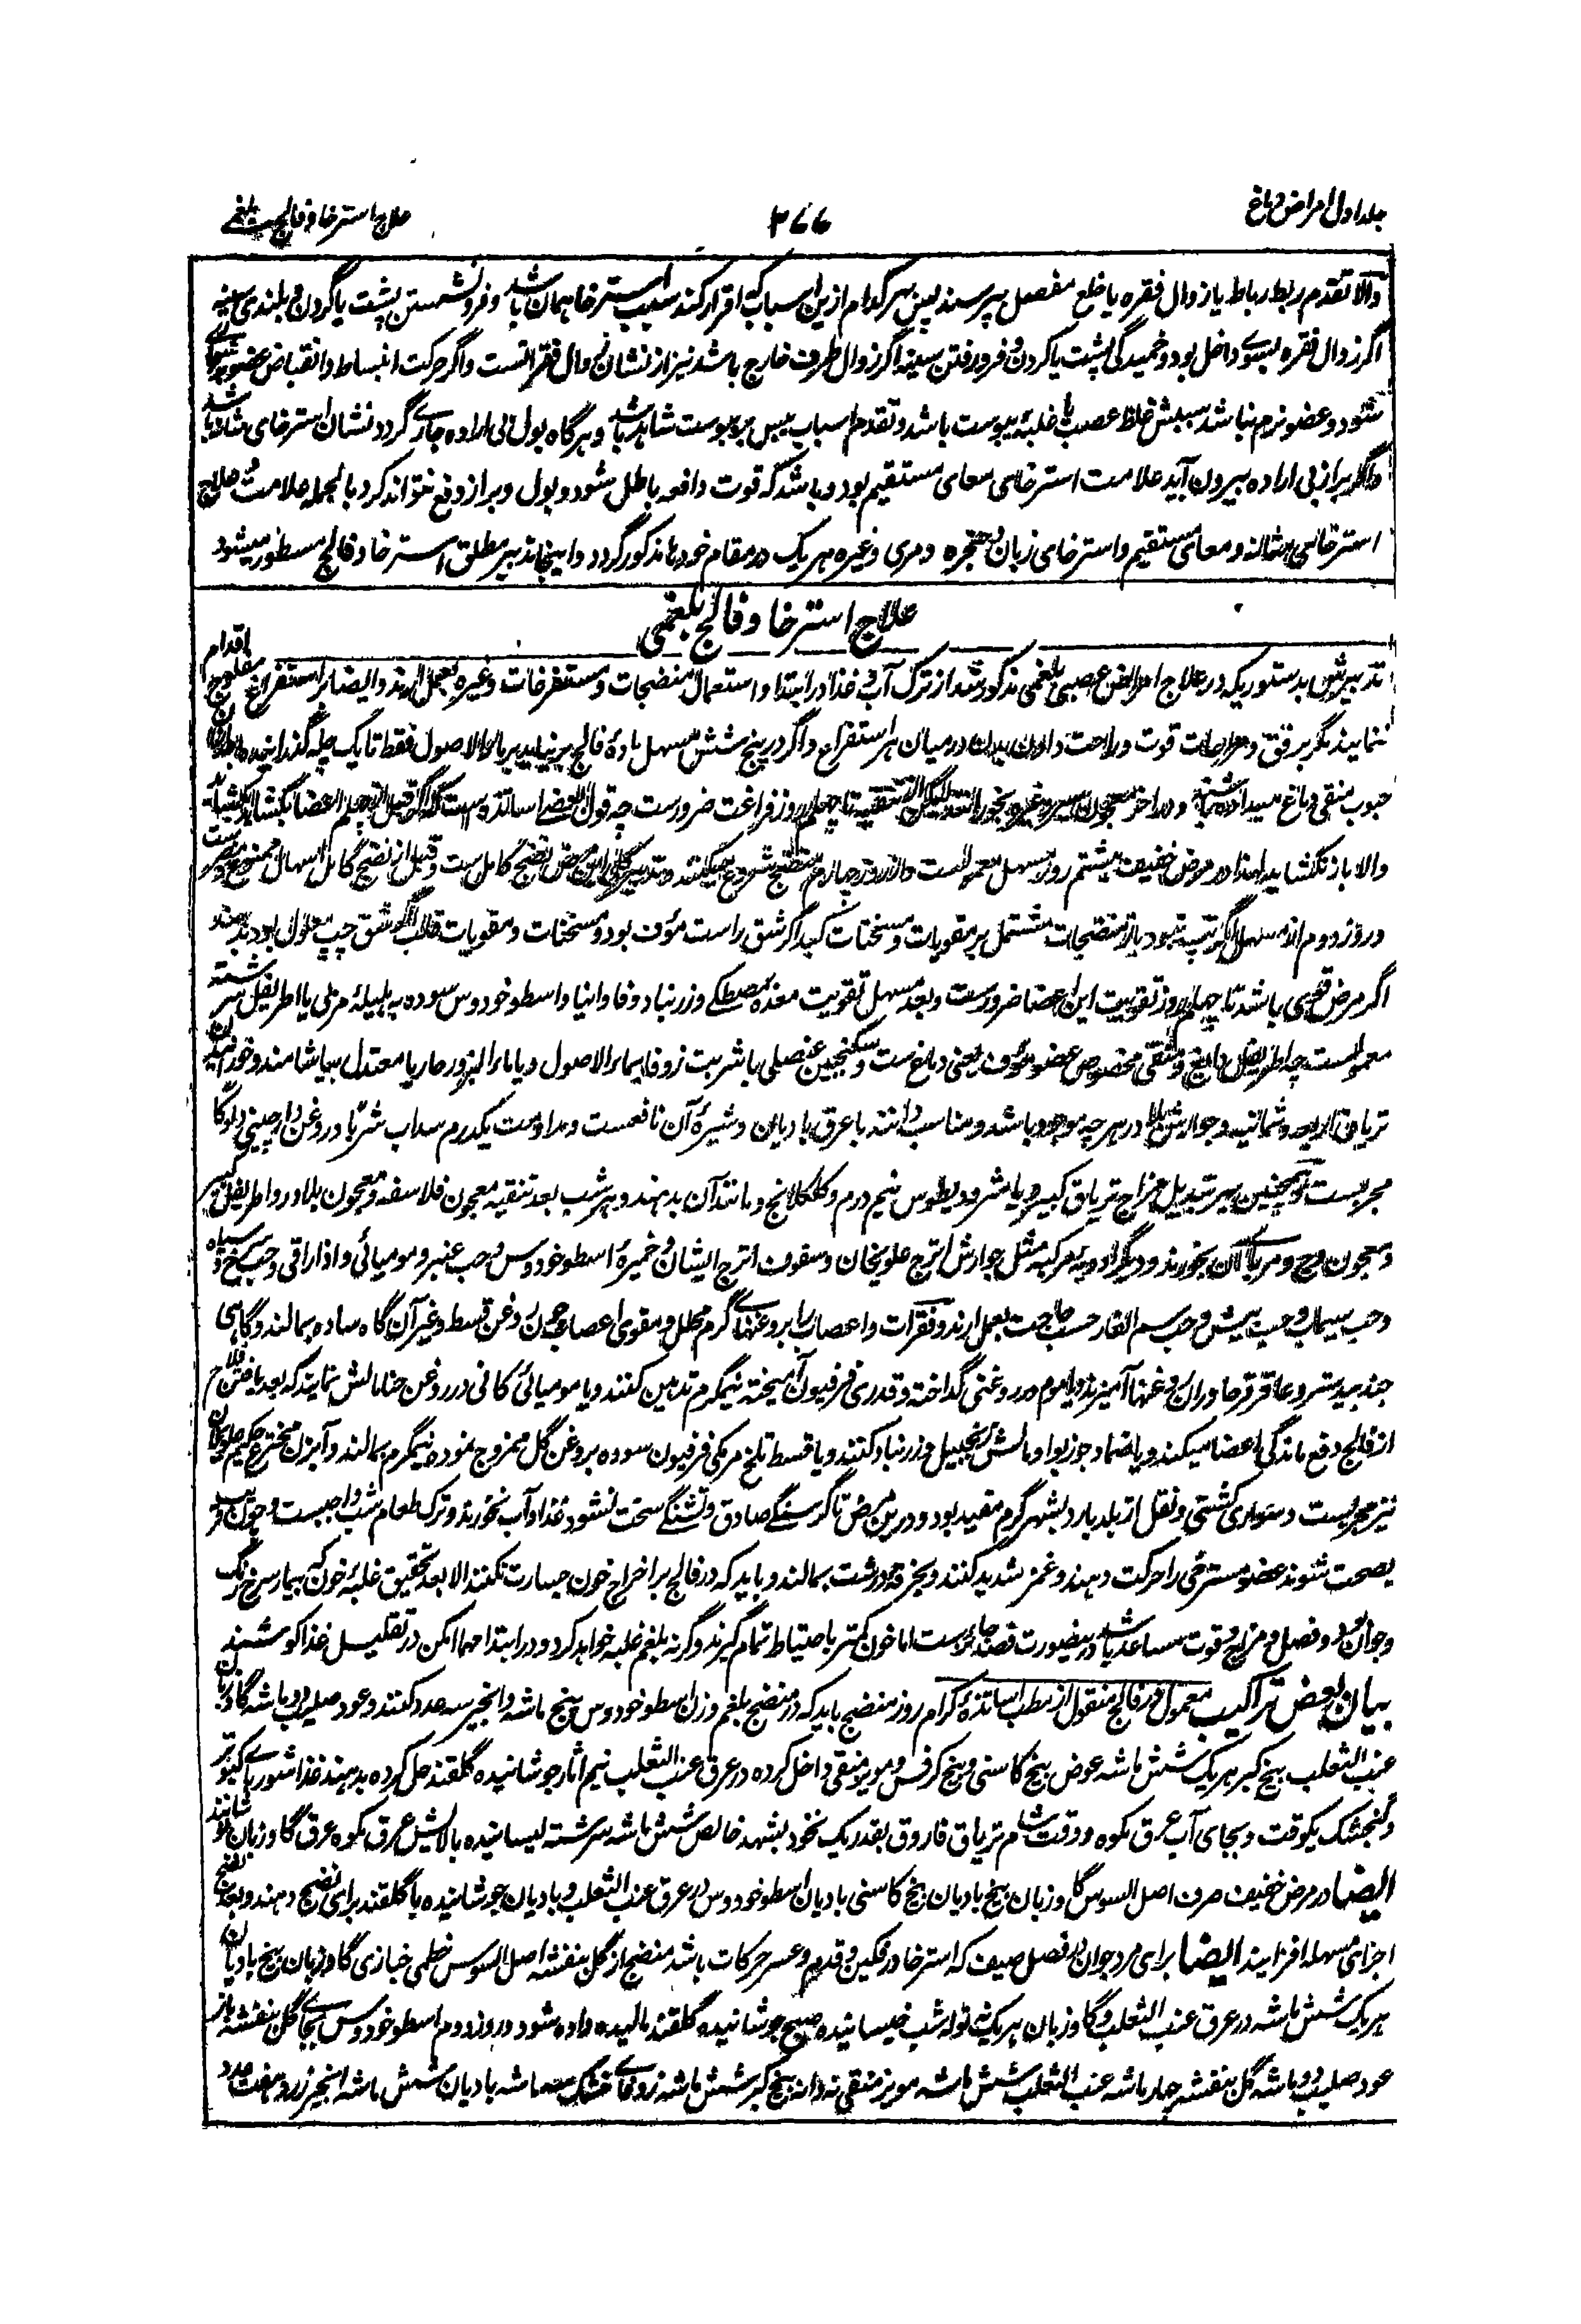 جلد اول امراض دماغ
۳۶۶
علاج استرخا و فالج بلغمی
والا تقدم ربط رباط یا زوال فقره یا خلع مفصل پرسند پس هر کدام ازین اسباب که اقرار کند سبب استرخا همان باشد و فرو نشستن پشت یا گردن و بلندی سینه
اگر زوال فقره بسوے داخل بود و خمیدگی پشت یا گردن و فرو رفتن سینه اگر زوال طرف خارج باشد نیز از نشان زوال فقراتست و اگر حرکت انبساط و انقباض عضو بدشواری
شود و عضو نرم نباشد سببش غلظ عصب یا غلبۂ یبوست باشد و تقدم اسباب یبس بر یبوست شاهد باشد و هرگاه بول بی اراده جاری گردد نشان استرخای مثانه باشد
و اگر براز بی اراده بیرون آید علامت استرخای معای مستقیم بود و باشد که قوت دافعه باطل شود و بول و براز دفع نتواند کرد بالجمله علامت و علاج
استرخای مثانه و معای مستقیم و استرخای زبان و حنجره و مری و غیره هر یک در مقام خود ها مذکور گردد و اینجا تدبیر مطلق استرخا و فالج مسطور میشود
علاج استرخا و فالج بلغمی
تدبیرش بدستوریکه در علاج امراض عصبی بلغمی مذکور شد از ترک آب و غذا در ابتدا و استعمال منضجات و مستفرغات و غیره بعمل آرند و ایضا بر استفراغ مفلوج اقدام
ننمایند مگر برفق و مراعات قوت و راحت دادن بدن در میان هر استفراغ و اگر در پنج شش مسهل مادۂ فالج بر نیاید بر ماء الاصول فقط تا یک چله گذرانیده
حبوب منقی دماغ میداده باشند و در آخر معجون سیر و غیره بخورانند لیکن تنقیه تا چهلم روز فراغت ضرورست چه قول بعضے اساتذه است که اگر قبل از چهلم اعضا بکشاید
والا باز نکشاید لهذا در مرض خفیف هشتم روز مسهل معمولست و از روز چهارم منضج شروع میکنند و تدبیر کلی این مرض نضج کامل ست و قبل از نضج کامل اسهال ممنوع و مضرست
و روز دوم از مسهل اگر تپ نبود باز منضجات مشتمل بر مقویات و مسخنات کبد اگر شق راست مؤف بود و مسخنات و مقویات قلب اگر شق چپ معلول بود بدهند
اگر مرض قوی باشد تا چهلم روز تقویت این اعضا ضرورست و بعد مسهل تقویت معده بمصطکے و زرنباد و فاوانیا و اسطوخودوس سوده به هلیلۂ مربی یا اطریفل سرشته
معمولست چه اطریفل دابغ و منقی مخصوص عضو مؤف یعنی دماغ ست و سکنجبین عنصلی یا شربت زوفا بماء الاصول و یا ماء البزور حار یا معتدل بیاشامند و خورانیدن
تریاق اربعه و ثمانیه و جوارش بلادر هرچه موجود باشد و مناسب دانند با عرق بادیان و شیرۂ آن نافعست و مداومت یکدرم سداب شربا و روغن دارچینی دلوکا
مجربست و همچنین بهر تبدیل مزاج تریاق کبیر و یا مثرودیطوس نیم درم و کلکلانج و مانند آن بدهند و هر شب بعد تنقیه معجون فلاسفه و معجون بلادر و اطریفل کبیر
و معجون وج و مربای آن بخورند و دیگر ادویۂ مرکبه مثل جوارش اترج علویخان و سفوف اترج ایشان و خمیرۂ اسطوخودوس و حب عنبر و مومیائی و اذاراقی و حب سرخ و سیاه
و حب سیماب و حب بیش و حب سم الفار حسب حاجت بعمل آرند و فقرات و اعصاب را بروغنهای گرم محلل و مقوی اعصاب چون روغن قسط و غیر آن گاه ساده بمالند و گاهی
جندبیدستر و عاقرقرحا دران روغنها آمیزند و یا موم در روغنی گداخته و قدری فرفیون آمیخته نیمگرم تدهین کنند و یا مومیائی کانی در روغن حنا مالش نمایند که بعد یافتن فلاح
از فالج دفع ماندگی اعضا میکند و یا ضماد جوزبوا و مالش زنجبیل و زرنباد کنند و یا قسط تلخ مرمکی فرفیون سوده بروغن گل ممزوج نموده نیمگرم بمالند و آبزن مخترع حکیم علویخان
نیز مجربست و سواری کشتی و نقل از بلد بارد بشهر گرم مفید بود و درین مرض تا گرسنگے صادق و تشنگے سخت نشود غذا و آب نخورند و ترک طعام شب واجبست و چون
بصحت شوند عضو مسترخی را حرکت دهند و غمز شدید کنند و بخرقۂ درشت بمالند و باید که در فالج بر اخراج خون جسارت نکنند الا بعد تحقیق غلبۂ خون که بیمار سرخ رنگ
و جوان بود و فصل و مزاج و قوت مساعد باشد درینصورت فصد جائزست اما خون کمتر باحتیاط تمام گیرند وگرنه بلغم غلبه خواهد کرد و در ابتدا حتی امکن در تقلیل غذا کوشند
بیان بعض تراکیب معمول در فالج منقول از مطب اساتذۂ کرام روز منضج باید که در منضج بلغم وزن اسطوخودوس پنج ماشه و انجیر سه عدد کنند و عود صلیب دو ماشه گاوزبان
عنب الثعلب بیخ کبر هر یک شش ماشه عوض بیخ کاسنی و بیخ کرفس و مویز منقی داخل کرده در عرق عنب الثعلب نیم آثار جوشانیده گلقند حل کرده بدهند غذا شوربای کبوتر
و کنجشک یکوقت و بجای آب عرق مکوه و وقت شام تریاق فاروق بقدر یک نخود بشهد خالص شش ماشه سرشته لیسانیده بالایش عرق مکوه عرق گاوزبان نوشانند
ایضا در مرض خفیف صرف اصل السوس گاوزبان بیخ بادیان بیخ کاسنی بادیان اسطوخودوس در عرق عنب الثعلب و بادیان جوشانیده با گلقند برای نضج دهند و بعد نضج
اجزای مسهله افزایند ایضا برای مرد جوان در فصل صیف که استرخا در فکین و قدم و عسر حرکات باشد منضج از گل بنفشه اصل السوس خطمی خبازی گاوزبان بیخ بادیان
هر یک شش ماشه در عرق عنب الثعلب و گاوزبان هر یک توله شب خیسانیده صبح جوشانیده گلقند مالیده داده شود و روز دوم اسطوخودوس بجای گل بنفشه باز
عود صلیب دو ماشه گل بنفشه چهار ماشه عنب الثعلب شش ماشه مویز منقی نه دانه بیخ کبر شش ماشه زوفای خشک سه ماشه بادیان شش ماشه انجیر زرد هفت عدد